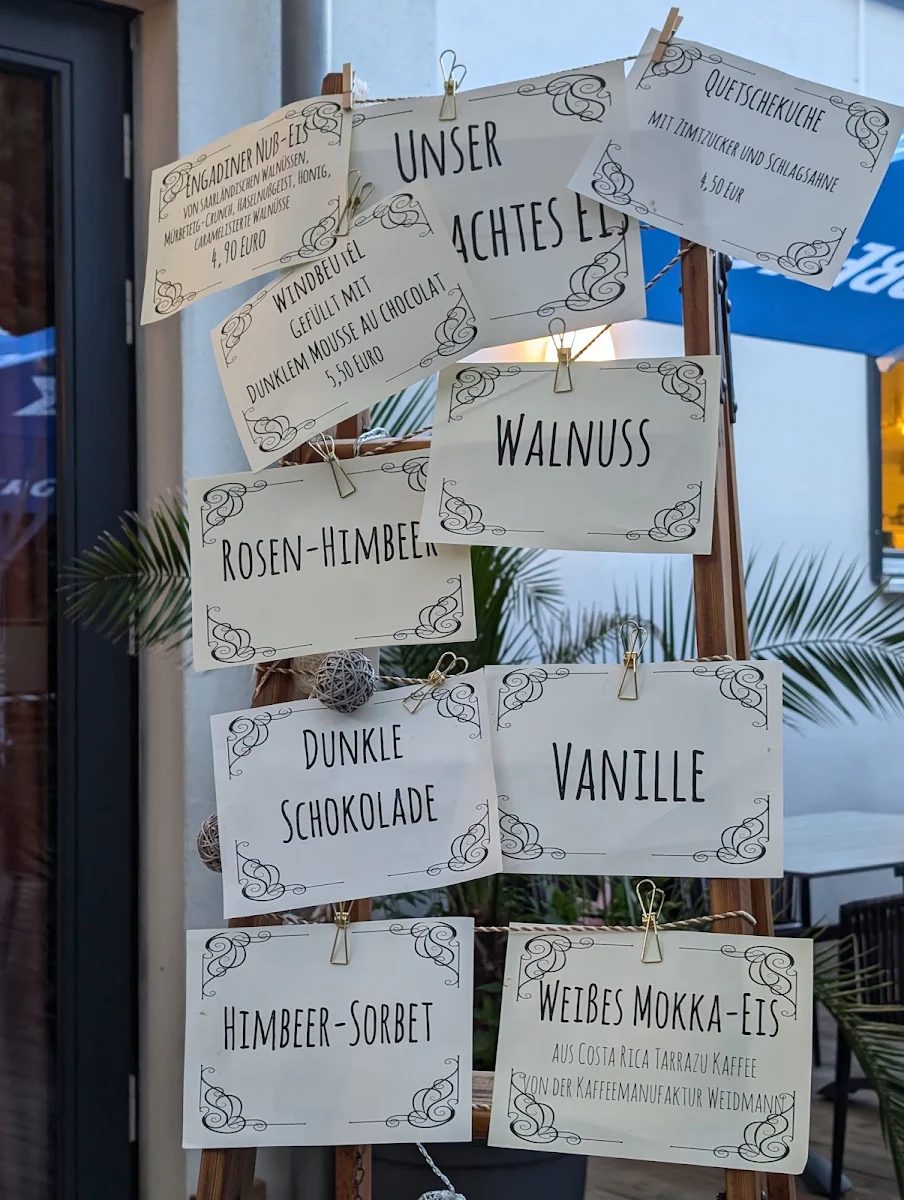 Engadiner Nuß-Eis
von saarländischen Walnüssen,
Mürbeteig-Crunch, Haselnußgeist, Honig,
caramelisierte Walnüsse
4,90 Euro
Unser
achtes Eis
Quetschekuche
mit Zimtzucker und Schlagsahne
4,50 Eur
Windbeutel
gefüllt mit
dunklem Mousse au Chocolat
5,50 Euro
Walnuss
Rosen-Himbeer
Dunkle
Schokolade
Vanille
Himbeer-Sorbet
Weißes Mokka-Eis
aus Costa Rica Tarrazu Kaffee
von der Kaffeemanufaktur Weidmann